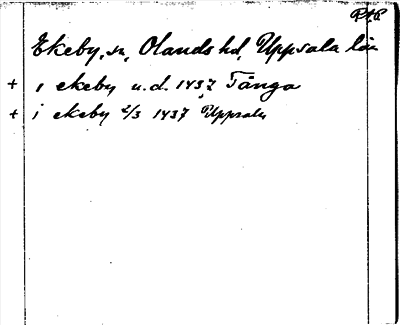 Ekeby, sn, Olands hd, Uppsala län
+ i ekeby u.d. 1437 Tånga
+ i ekeby 2/3 1437 Uppsala